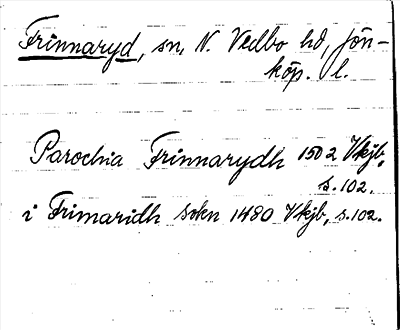 Frinnaryd, sn, N. Vedbo hd, Jön-
köp. l.
Parochia Frinnarydh 1502 Vkjb,
s. 102.
i Frimaridh soken 1490 Vkjb, s. 102.